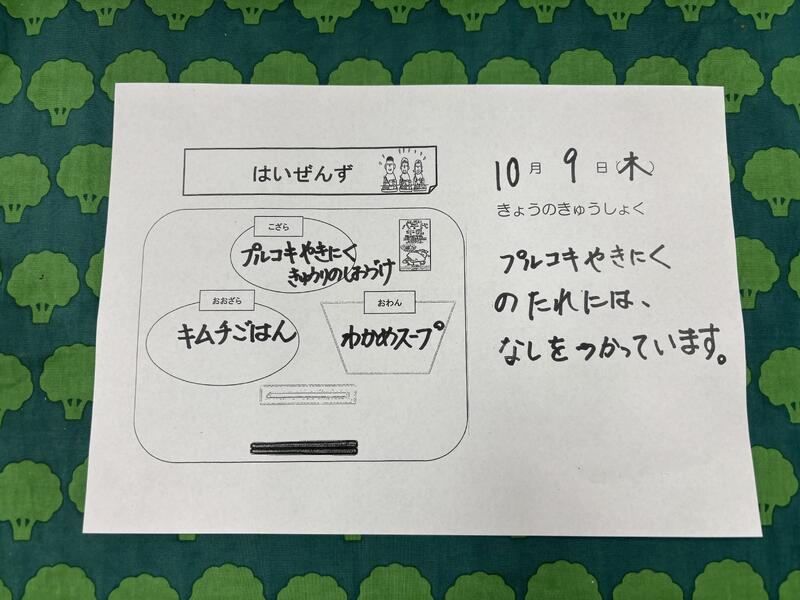 はいぜんず
こざら
プルコギやきにく
きゅうりのしおづけ
おおざら
キムチごはん
おわん
わかめスープ
10月9日(木)
きょうのきゅうしょく
プルコギやきにく
のたれには、
なしをつかっています。